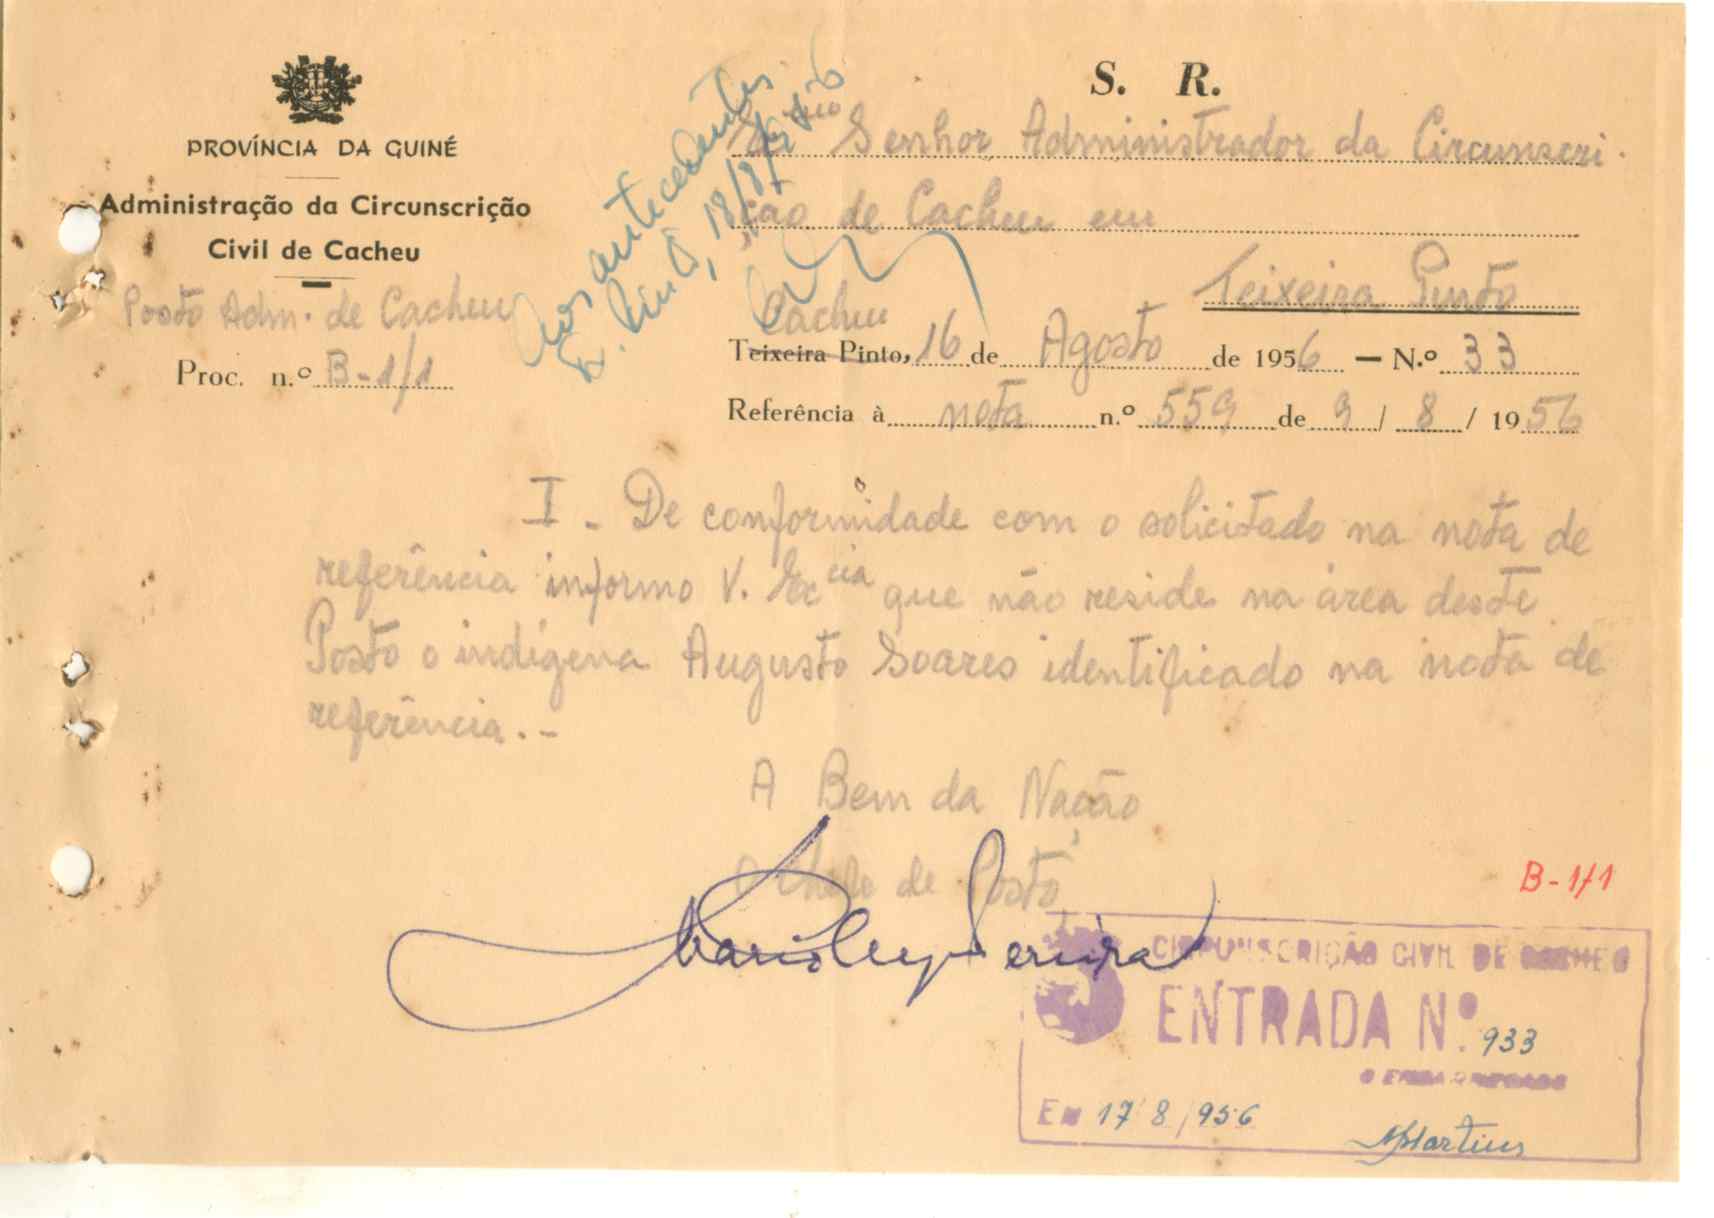 S. R.
PROVÍNCIA DA GUINÉ
Administração da Circunscrição
Civil de Cacheu
Posto Adm. de Cacheu
Proc. n.º B-1/1
Aos antecedentes
T. Pinto, 18/8/956
Exmo Senhor Administrador da Circunscri-
ção de Cacheu em
Teixeira Pinto
Cacheu
Teixeira Pinto, 16 de Agosto de 1956 — N.º 33
Referência à nota n.º 559 de 9 / 8 / 1956
I - De conformidade com o solicitado na nota de
referência informo V. Excia que não reside na área deste
Posto o indígena Augusto Soares identificado na nota de
referência.-
A Bem da Nação,
O Chefe de Posto
Pereira
B-1/1
CIRCUNSCRIÇÃO CIVIL DE CACHEU
ENTRADA Nº. 933
O ENCARREGADO
EM 17/8/956
Martins